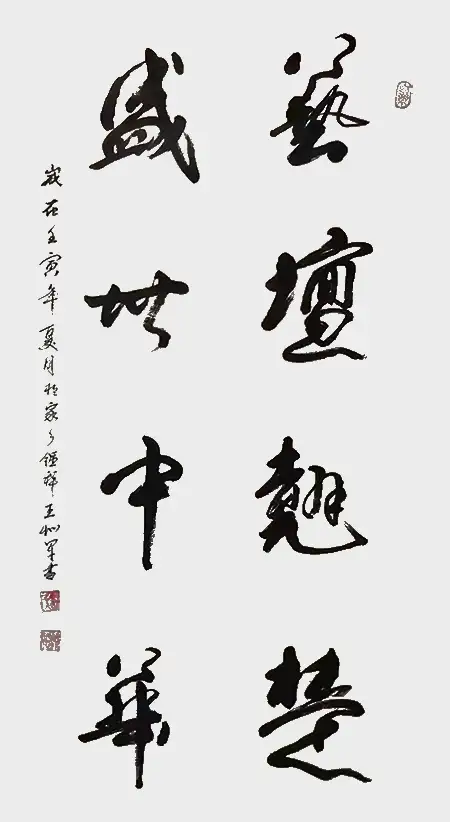 藝壇翹楚
盛世中華
歲在壬寅年夏月於家乡鍾祥王
書